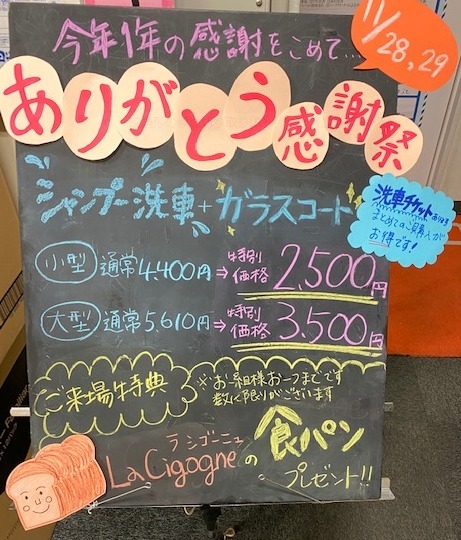 今年1年の感謝をこめて...
11/28,29
ありがとう感謝祭
シャンプー洗車+ガラスコート
洗車チケットあります
まとめてのご購入が
お得です!
小型 通常4,400円⇒特別価格 2,500円
大型 通常5,610円⇒特別価格 3,500円
ご来場特典
※お一組様お一つまでです
数に限りがございます
ラ シゴーニュ
La Cigogneの食パン
プレゼント!!